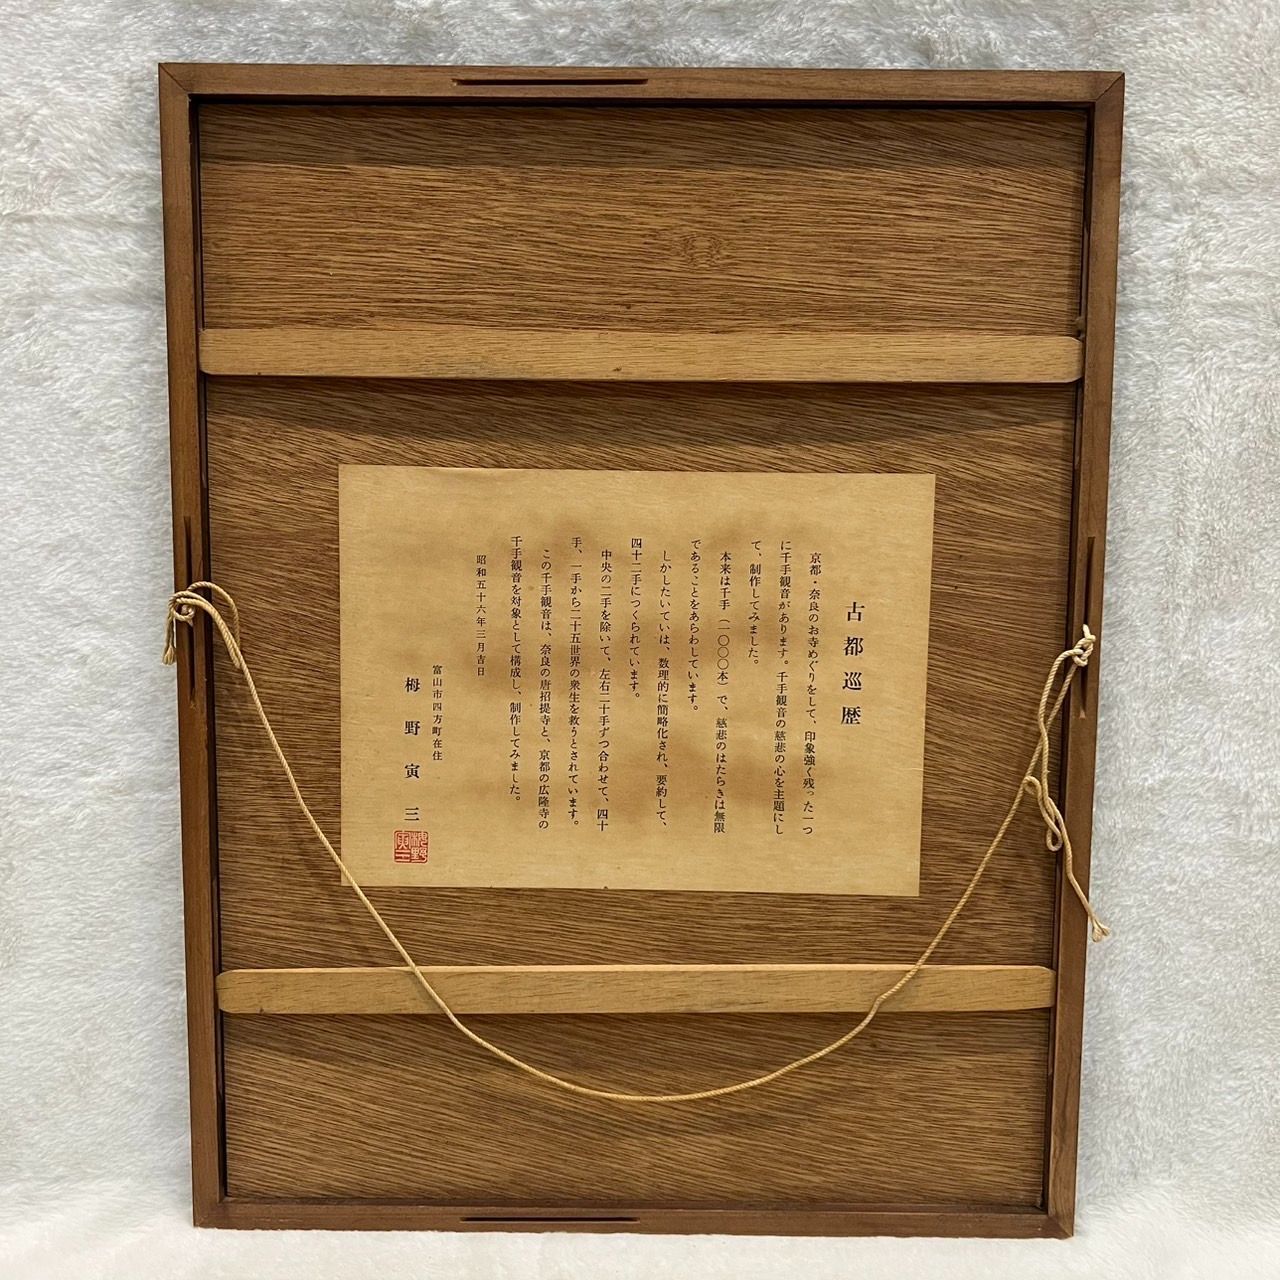 古都巡歴
京都・奈良のお寺めぐりをして、印象強く残った一つ
に千手観音があります。千手観音の慈悲の心を主題にし
て、制作してみました。
本来は千手（一〇〇〇本）で、慈悲のはたらきは無限
であることをあらわしています。
しかしたいていは、数理的に簡略化され、要約して、
四十二手につくられています。
中央の二手を除いて、左右二十手ずつ合わせて、四十
手、一手から二十五世界の衆生を救うとされています。
この千手観音は、奈良の唐招提寺と、京都の広隆寺の
千手観音を対象として構成し、制作してみました。
昭和五十六年三月吉日
富山市四方町在住
栂野寅三
栂野
寅三